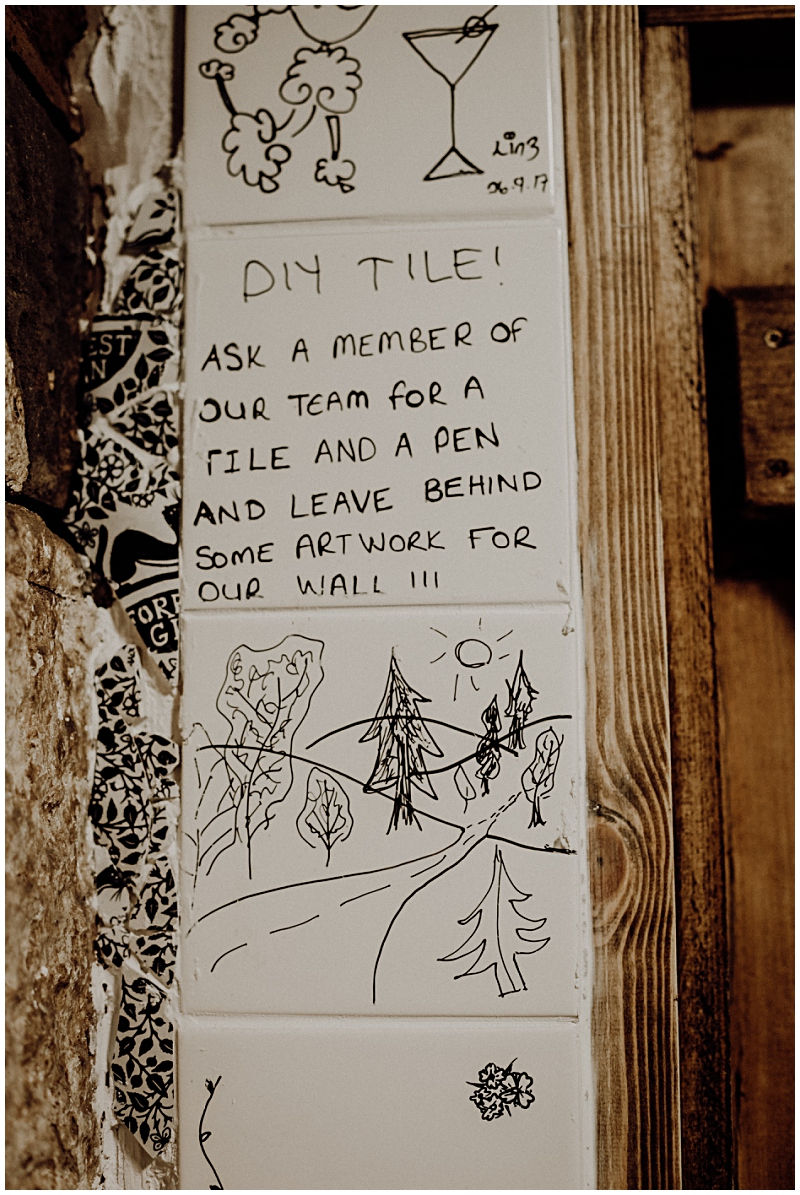 Linz
26.9.17
DIY TILE!
ASK A MEMBER OF
OUR TEAM FOR A
TILE AND A PEN
AND LEAVE BEHIND
SOME ARTWORK FOR
OUR WALL !!!
EST
N
FOR
G